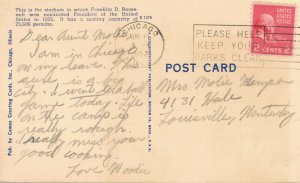 This is the stadium in which Franklin D. Roose
velt was nominated President of the
United States in 1932. It has a seating capacity of
25,000 persons.
Pub. by Cameo Greeting Cards, Inc., Chicago, Illinois
Dear Aunt Motie
I am in Chicago
on my leave. It
sure is a big
city. I went to a ball
game today. Life
in the camp is
really rough.
I really miss your
good cooking.
Love Woodie
CHICAGO
PLEASE HELP
KEEP YOUR
PARKS CLEAN
2 CENTS 2
POST CARD
Mrs. Motie Kemper
4131 Hale
Louisville, Kentucky